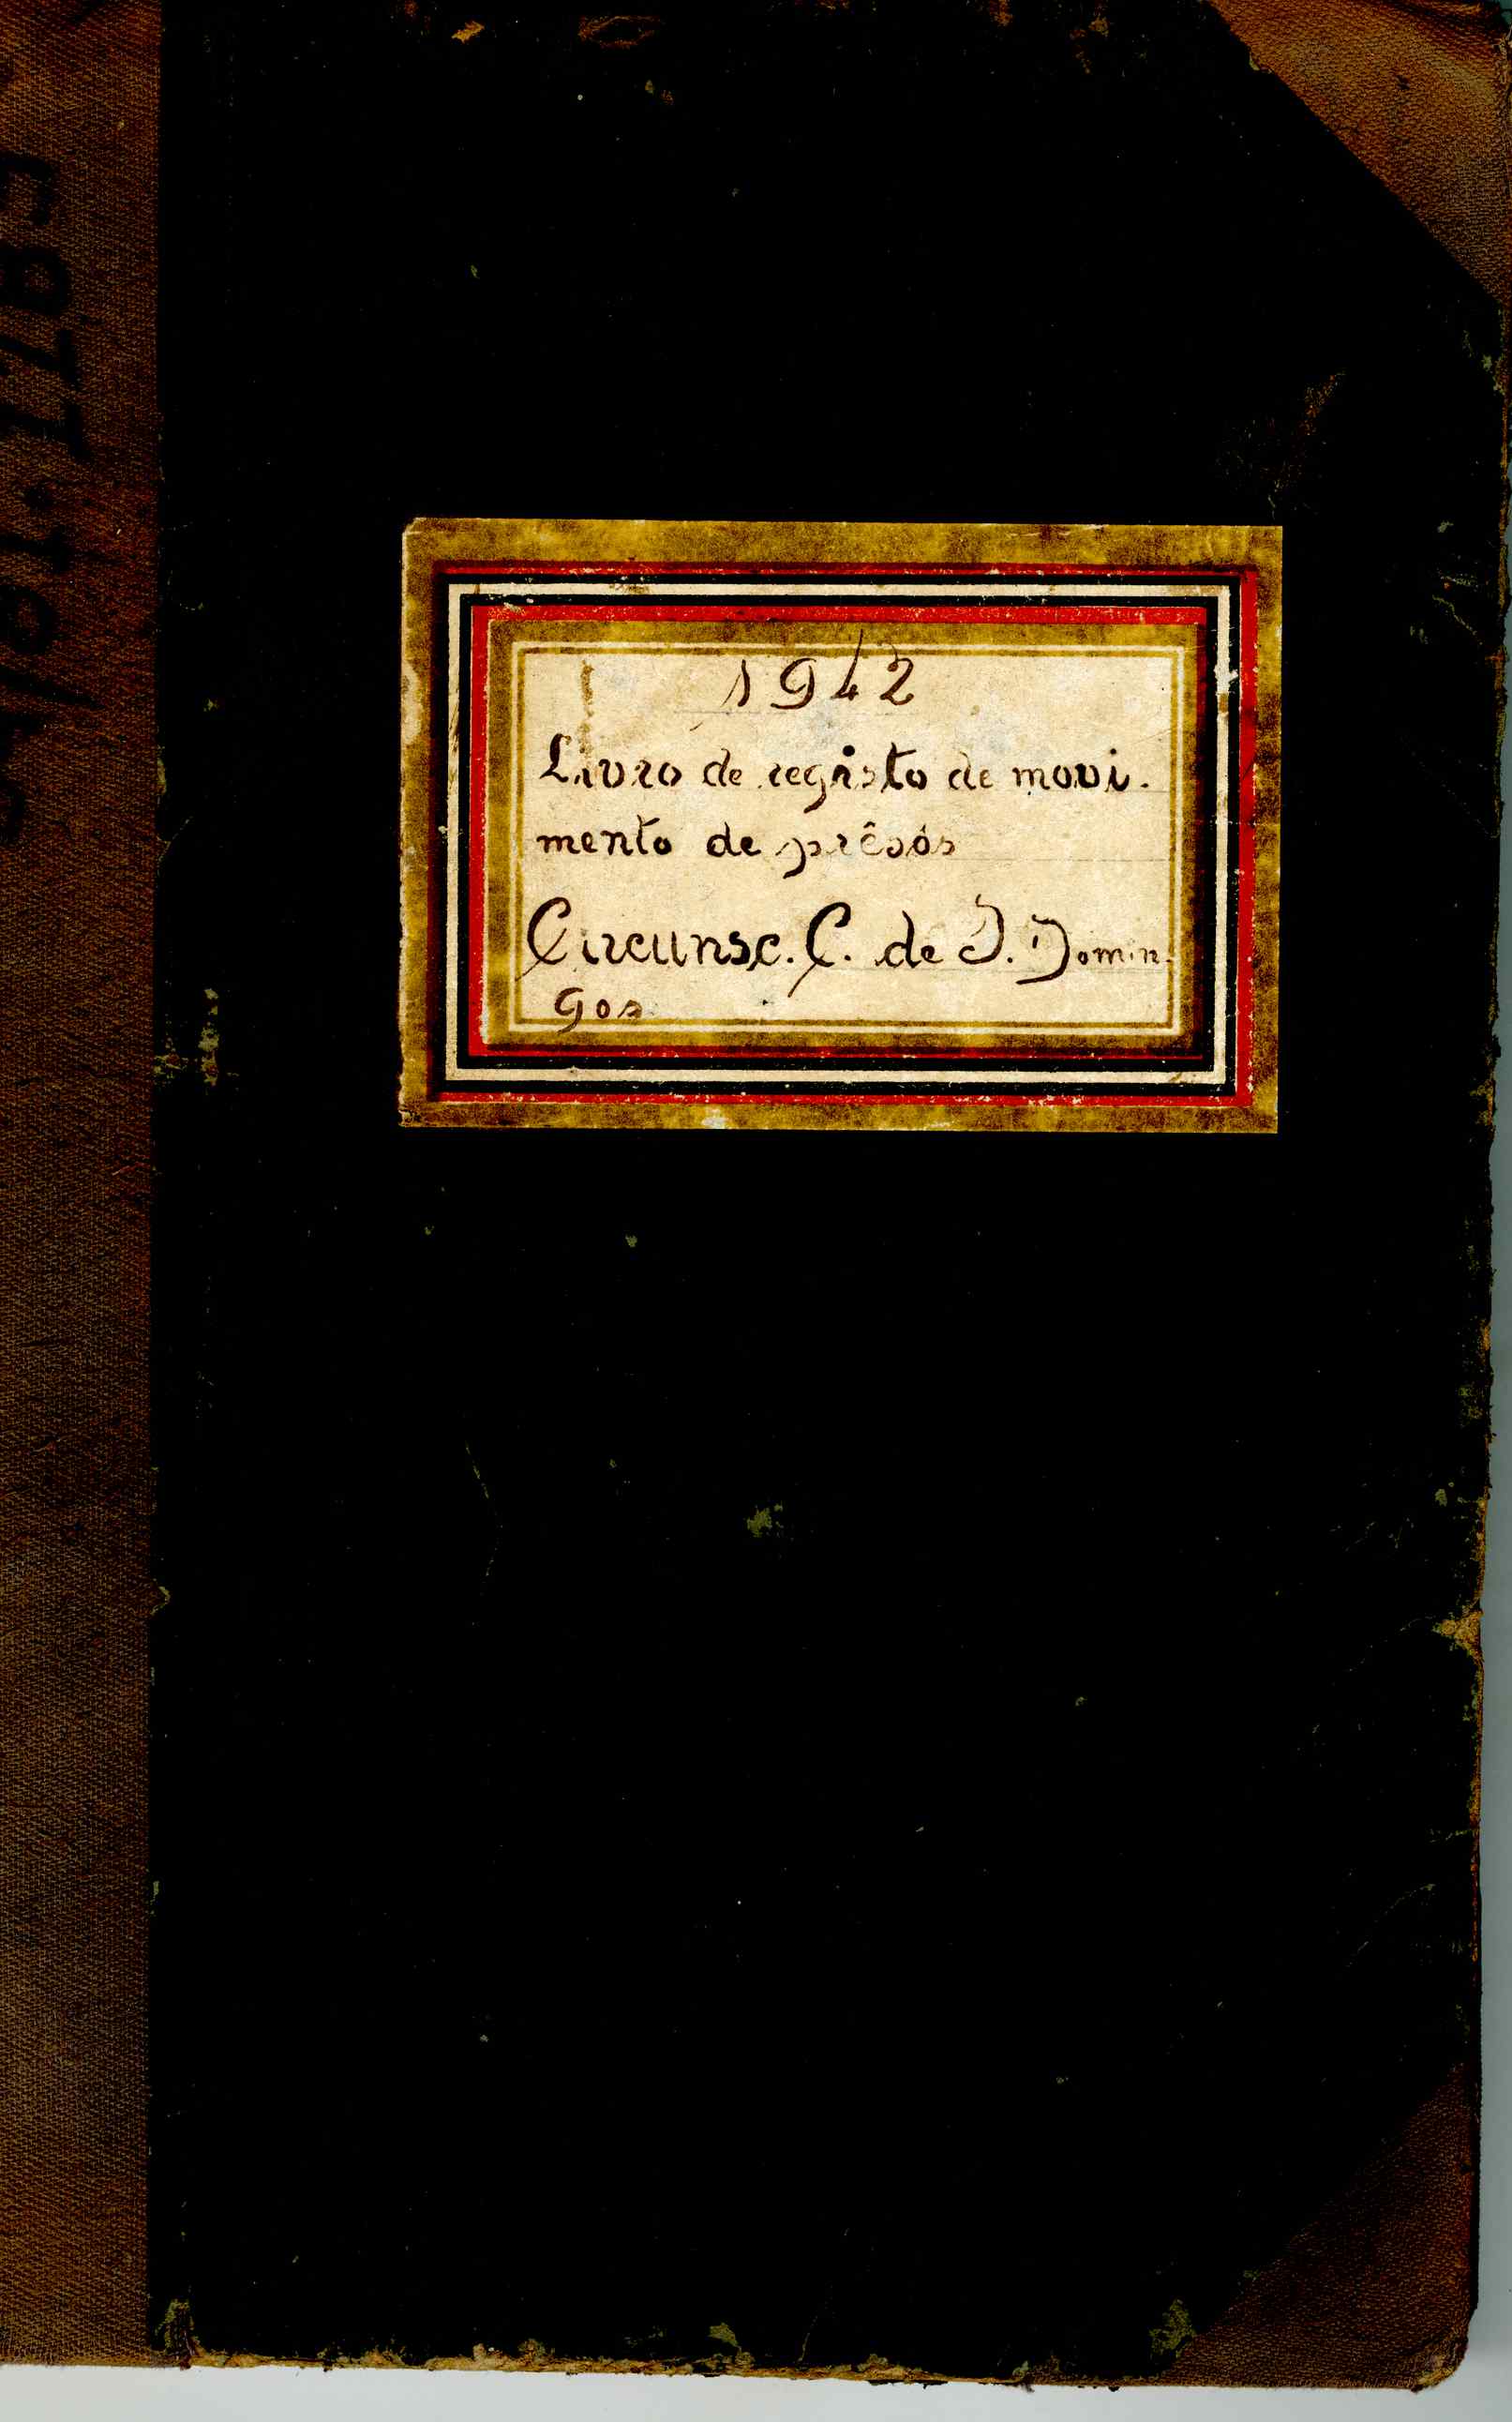 1942
Livro de registo de movi-
mento de prêsos
Circunsc. C. de S. Domin-
gos